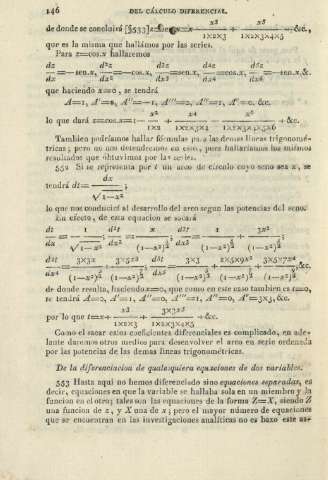 146 DEL CÁLCULO DIFERENCIAL.
de donde se concluirá [§533] z=sen.x=x− x3/1X2X3 + x5/1X2X3X4X5 −,&c.,
que es la misma que hallámos por las series.
Para z=cos.x hallaremos
dz/dx=−sen.x, d2z/dx2=−cos.x, d3z/dx3=sen.x, d4z/dx4=cos.x, d5z/dx5=−sen.x,&c.
que haciendo x=0, se tendrá
A=1, A'=0, A''=−1, A'''=0, A''''=1, A^v=0, &c.
lo que dará z=cos.x=1− x2/1X2 + x4/1X2X3X4 − x6/1X2X3X4X5X6
Tambien podríamos hallar fórmulas para las demas lineas trigonomé-
tricas; pero no nos detendremos en esto, pues hallaríamos los mismos
resultados que obtuvimos por las series.
552 Si se representa por t un arco de círculo cuyo seno sea x, se
tendrá dt= dx/√1−x2
lo que nos conducirá al desarrollo del arco segun las potencias del seno.
En efecto, de esta equacion se sacará
dt/dx= 1/√1−x2; d2t/dx2= x/(1−x2)3/2; d3t/dx3= 1/(1−x2)3/2 + 3x2/(1−x2)5/2;
de donde resulta, haciendo x=0, que como en este caso tambien es t=0,
se tendrá A=0, A'=1, A''=0, A'''=1, A''''=0, A^v=3X3, &c.
por lo que t=x+ x3/1X2X3 + 3X3x5/1X2X3X4X5 +&c.
Como el sacar estos coeficientes diferenciales es complicado, en ade-
lante daremos otros medios para desenvolver el arco en serie ordenada
por las potencias de las demas lineas trigonométricas.
De la diferenciacion de qualesquiera equaciones de dos variables.
553 Hasta aquí no hemos diferenciado sino equaciones separadas, es
decir, equaciones en que la variable se hallaba sola en un miembro y la
funcion en el otro; tales son las equaciones de la forma Z=X, siendo Z
una funcion de z, y X una de x; pero el mayor número de equaciones
que se encuentran en las investigaciones analíticas no es baxo este as-